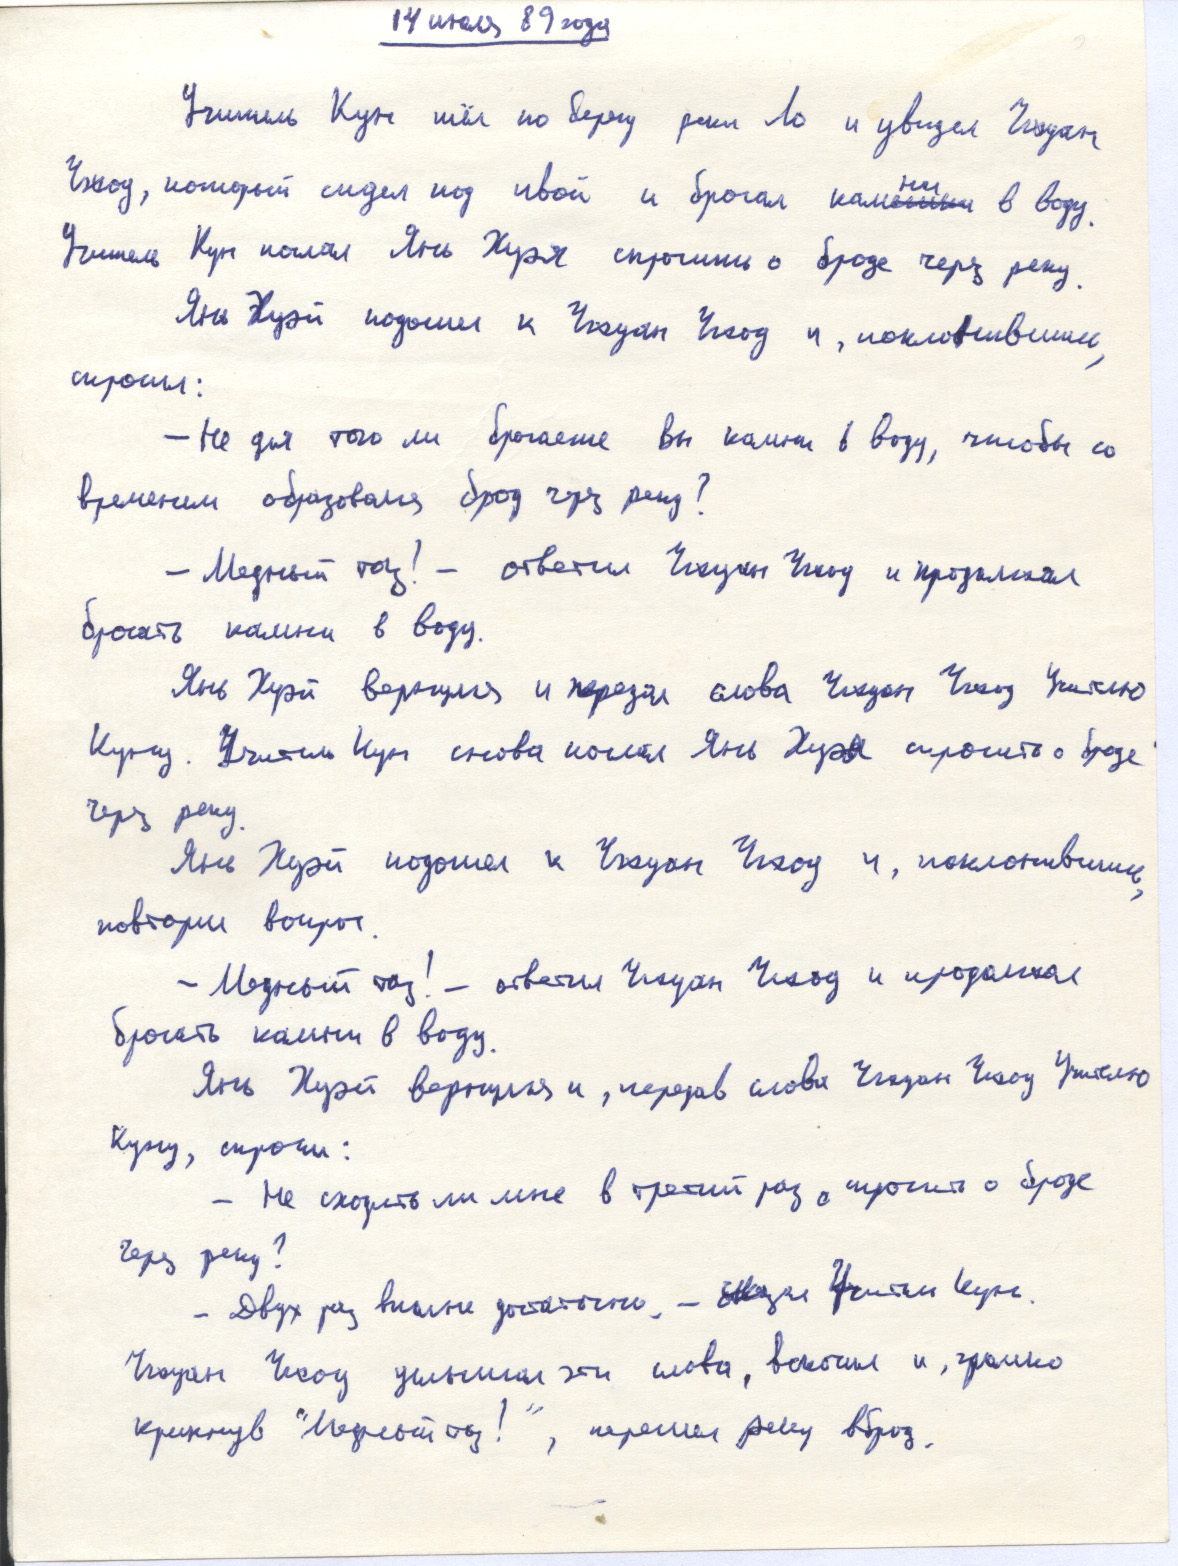 14 июля 89 года
Учитель Кун шёл по берегу реки Ло и увидел Чжуан
Чжоу, который сидел под ивой и бросал камни в воду.
Учитель Кун послал Янь Хуэя спросить о броде через реку.
Янь Хуэй подошел к Чжуан Чжоу и, поклонившись,
спросил:
— Не для того ли бросаете Вы камни в воду, чтобы со
временем образовался брод через реку?
— Медный таз! — ответил Чжуан Чжоу и продолжал
бросать камни в воду.
Янь Хуэй вернулся и передал слова Чжуан Чжоу Учителю
Куну. Учитель Кун снова послал Янь Хуэя спросить о броде
через реку.
Янь Хуэй подошел к Чжуан Чжоу и, поклонившись,
повторил вопрос.
— Медный таз! — ответил Чжуан Чжоу и продолжал
бросать камни в воду.
Янь Хуэй вернулся и, передав слова Чжуан Чжоу Учителю
Куну, спросил:
— Не сходить ли мне в третий раз спросить о броде
через реку?
— Двух раз вполне достаточно, — сказал Учитель Кун.
Чжуан Чжоу услышал эти слова, вскочил и, громко
крикнув "Медный таз!", перешел реку вброд.